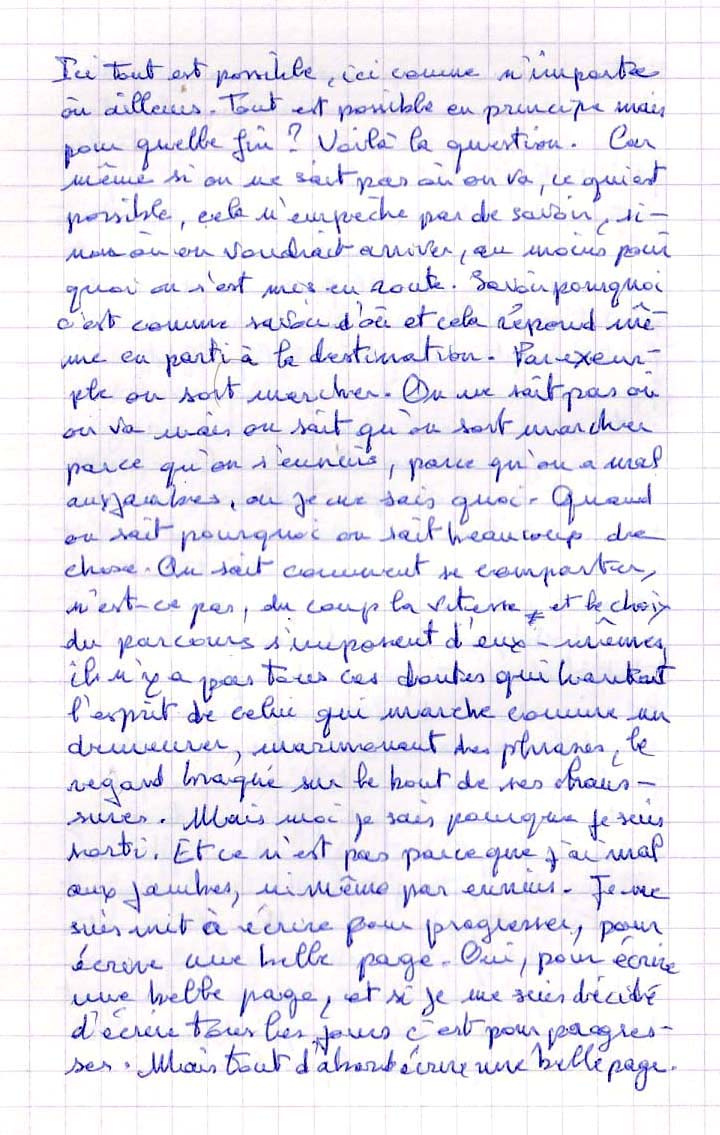 Ici tout est possible, ici comme n'importe
où ailleurs. Tout est possible en principe mais
pour quelle fin ? Voilà la question. Car
même si on ne sait pas où on va, ce qui est
possible, cela n'empêche pas de savoir, si-
non où on voudrait arriver, au moins pour
quoi on s'est mis en route. Savoir pourquoi
c'est comme savoir d'où et cela répond mê-
me en parti à la destination. Par exem-
ple on sort marcher. On ne sait pas où
on va mais on sait qu'on sort marcher
parce qu'on s'ennuis, parce qu'on a mal
aux jambes, ou je ne sais quoi. Quand
on sait pourquoi on sait beaucoup de
chose. On sait comment se comporter,
n'est-ce pas, du coup la vitesse et le choix
du parcours s'imposent d'eux-mêmes,
il n'y a pas tous ces doutes qui hantent
l'esprit de celui qui marche comme un
demeurer, marmonant des phrases, le
regard braqué sur le bout de ses chaus-
sures. Mais moi je sais pourquoi je suis
sorti. Et ce n'est pas parce que j'ai mal
aux jambes, ni même par ennuis. Je me
suis mit à écrire pour progresser, pour
écrire une belle page. Oui, pour écrire
une belle page, et si je me suis décidé
d'écrire tous les jours c'est pour progres-
ser. Mais tout d'abord écrire une belle page.